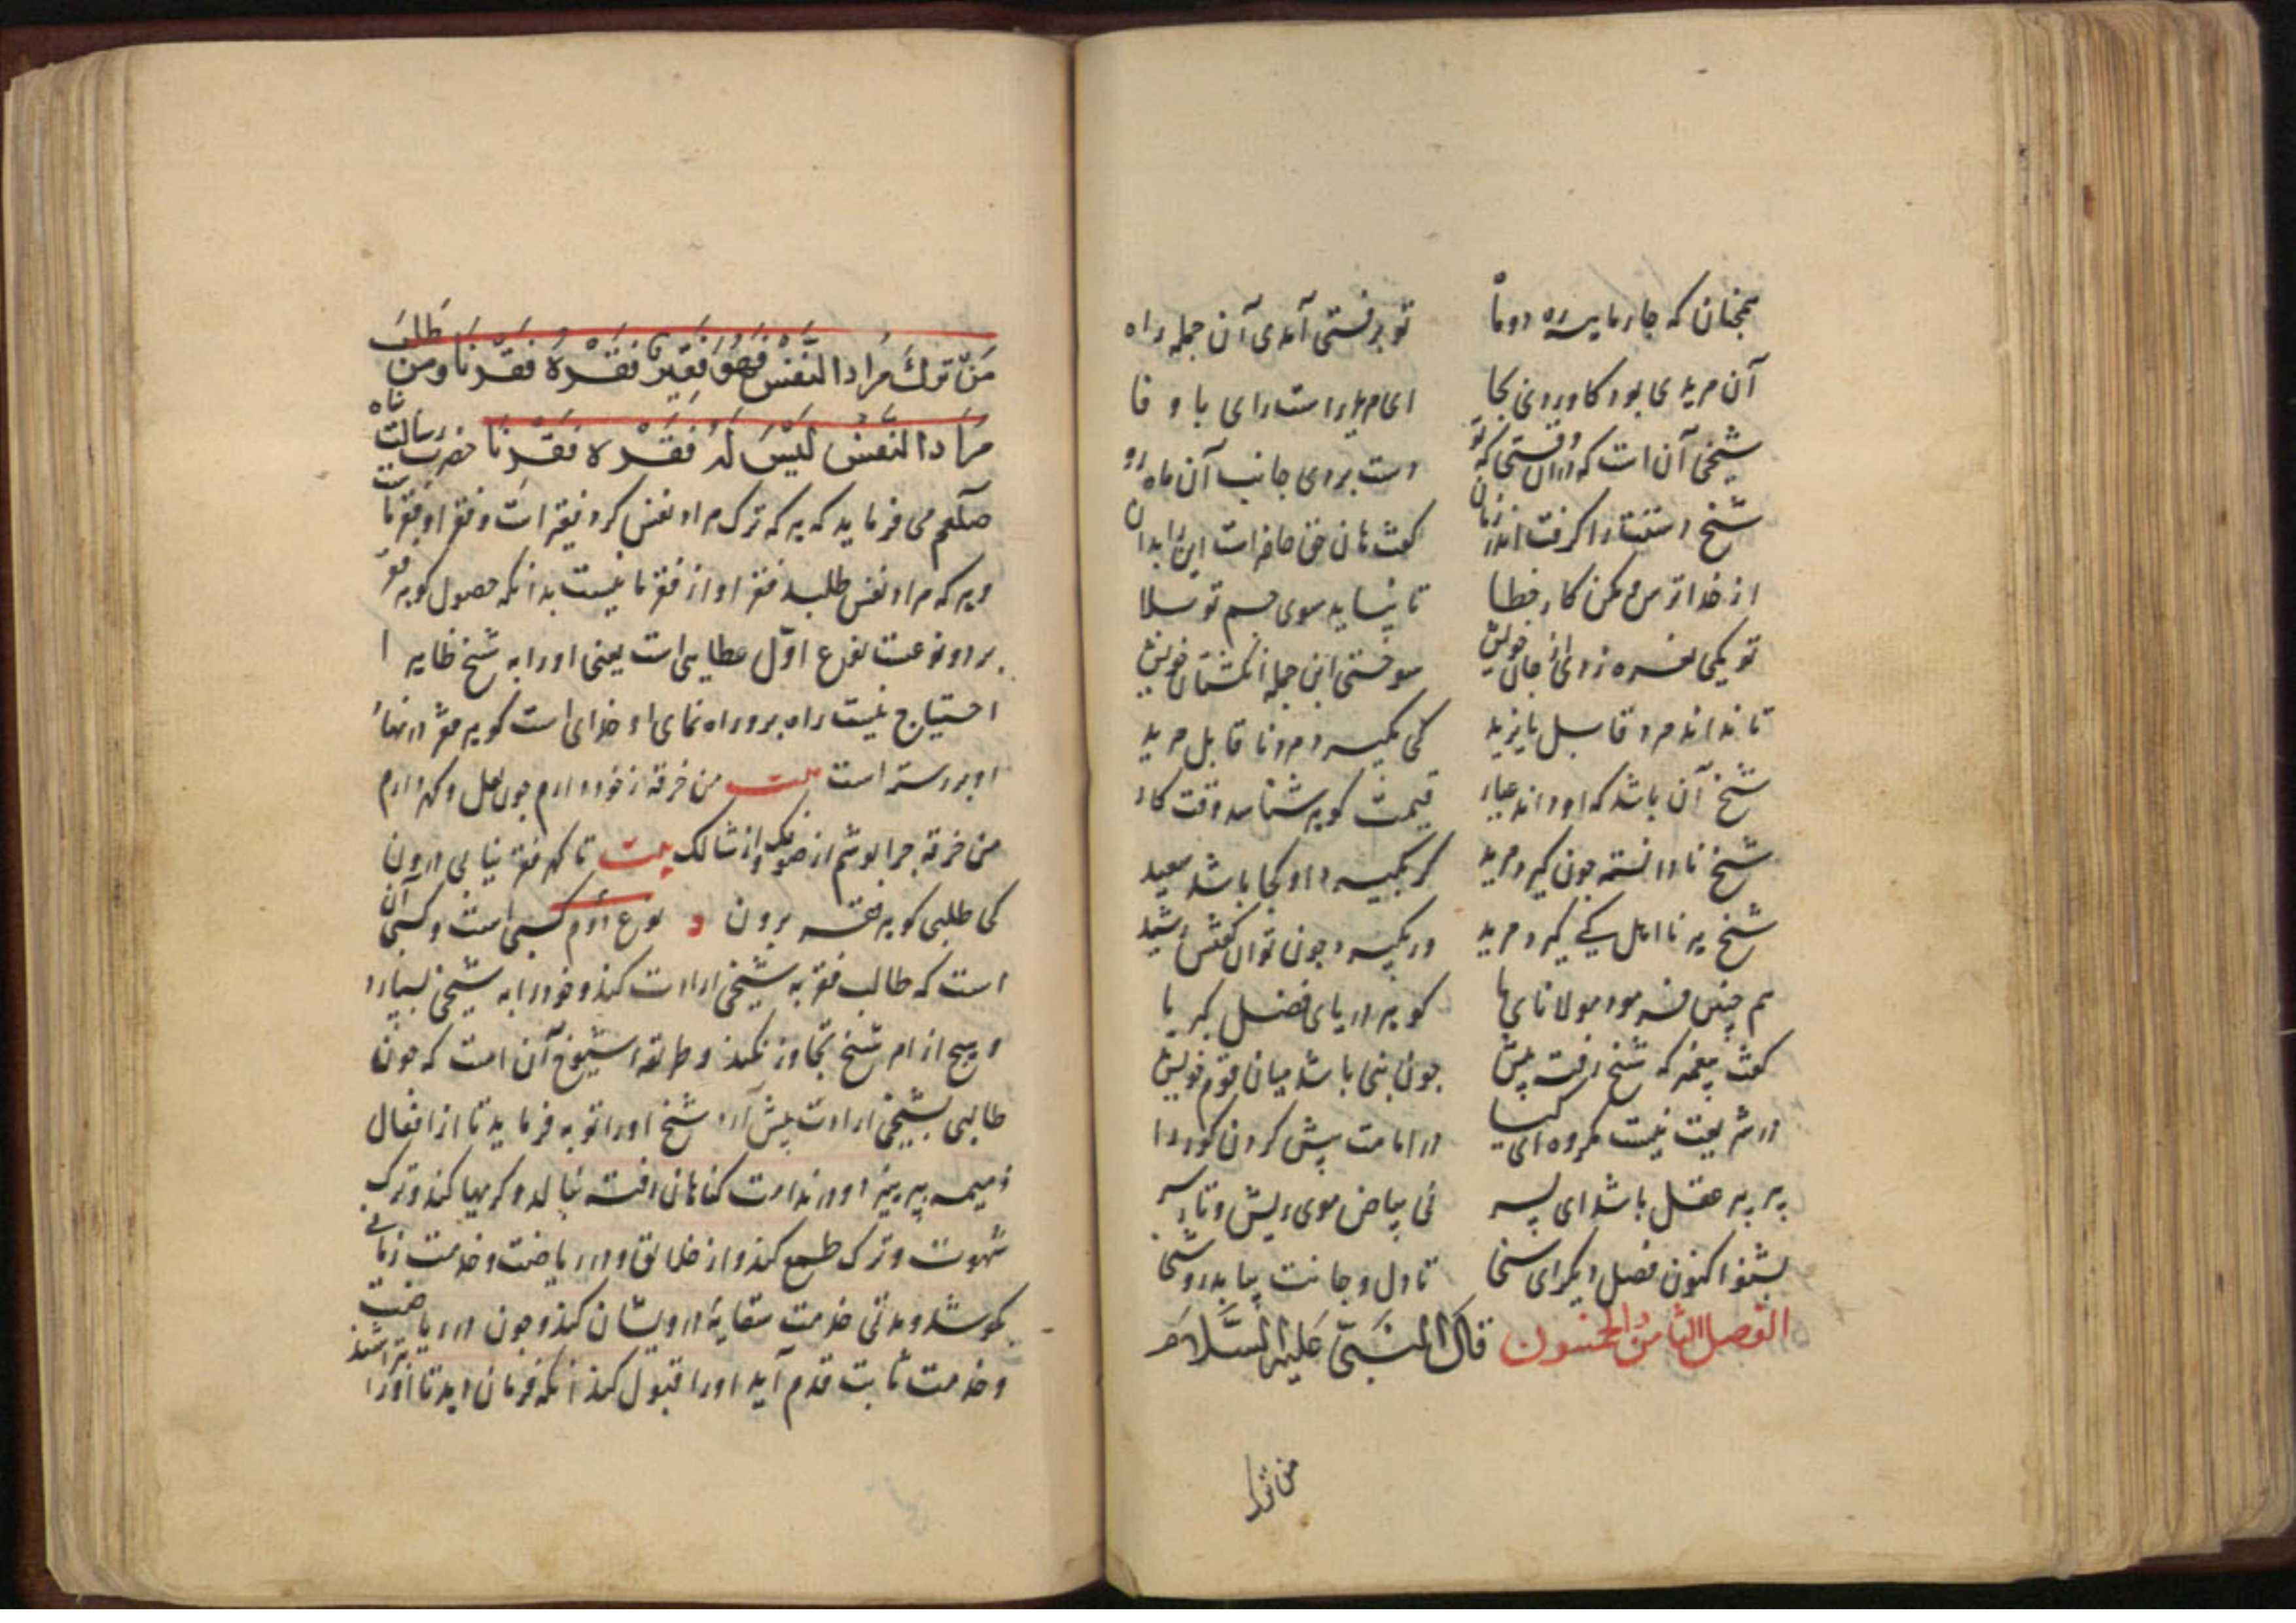 همچنان که چارمایسره دوتا تو برفستی آمدی آن جمله راه
آن مریدی بود کاوردی بجا ای مرید راست رای با وفا
شیخی آن است که دران وقتی که تو دست بردی جانب آن ماه رو
شیخ دستت را گرفت اندر زمان گفت هان حق حاضر است این را بدان
از خدا ترس و مکن کار خطا تا نیاید سوی جسم تو بلا
تو یکی نعره زدی از جان خویش سوختی این جمله انگشتان خویش
تا نداند مرد قابل بایزید کی بگیرد مرد ناقابل مرید
شیخ آن باشد که او داند عیار قیمت گوهر شناسد وقت کار
شیخ نادانسته چون گیرد مرید گر بگیرد او کجا باشد سعید
شیخ هر نااهل کی گیرد مرید ور بگیرد چون توان گفتش رشید
هم چنین فرمود مولانای ما گوهر دریای فضل کبریا
گفت پیغمبر که شیخ رفته پیش چون نبی باشد میان قوم خویش
در شریعت نیست مکروه ای کیا در امامت پیش کردن کور را
پیر پیر عقل باشد ای پسر نی بیاض موی ریش و تار سر
بشنو اکنون فصل دیگر ای سخا تا دل و جانت بیابد روشنا
الفصل الثامن والخمسون قال النبی علیه السلام
من ترک
من ترک مراد النفس فهو فقیر فقره فقرنا ومن طلب
مراد النفس لیس له فقره فقرنا حضرت رسالت پناه
صلعم می فرماید که هر که ترک مراد نفس کرد فقیر است و فقر او فقر ماست
و هر که مراد نفس طلبد فقر او از فقر ما نیست بدانکه حصول گوهر فقر
بر دو نوعست نوع اول عطایی است یعنی او را به شیخ ظاهر
احتیاج نیست راه برو راه نمای او خدای است گوهر فقر در نهاد
او بر رسته است بیت من خرقه ز خود دارم چون لعل و گهر دارم
من خرقه چرا پوشم از صوف و از شالک بیت تا گهر فقر نیابی درون
کی طلبی گوهر فقر برون نوع دوم کسبی است و کسبی آن
است که طالب فقر به شیخی ارادت کند و خود را به شیخی بسپارد
و هیچ از امر شیخ تجاوز نکند و طریقه شیوخ آن است که چون
طالبی بشیخی ارادت پیش آرد شیخ او را توبه فرماید تا از افعال
ذمیمه بپرهیزد و در ندامت گناهان رفته بنالد و گریها کند و ترک
شهوت و ترک طمع کند و از خلایق و در ریاضت و خدمت زمانی
بکوشد و مدتی خدمت سقایه درویشان کند و چون در ریاضت
و خدمت ثابت قدم آید او را قبول کند آنکه فرمان دهد تا او را بتراشند